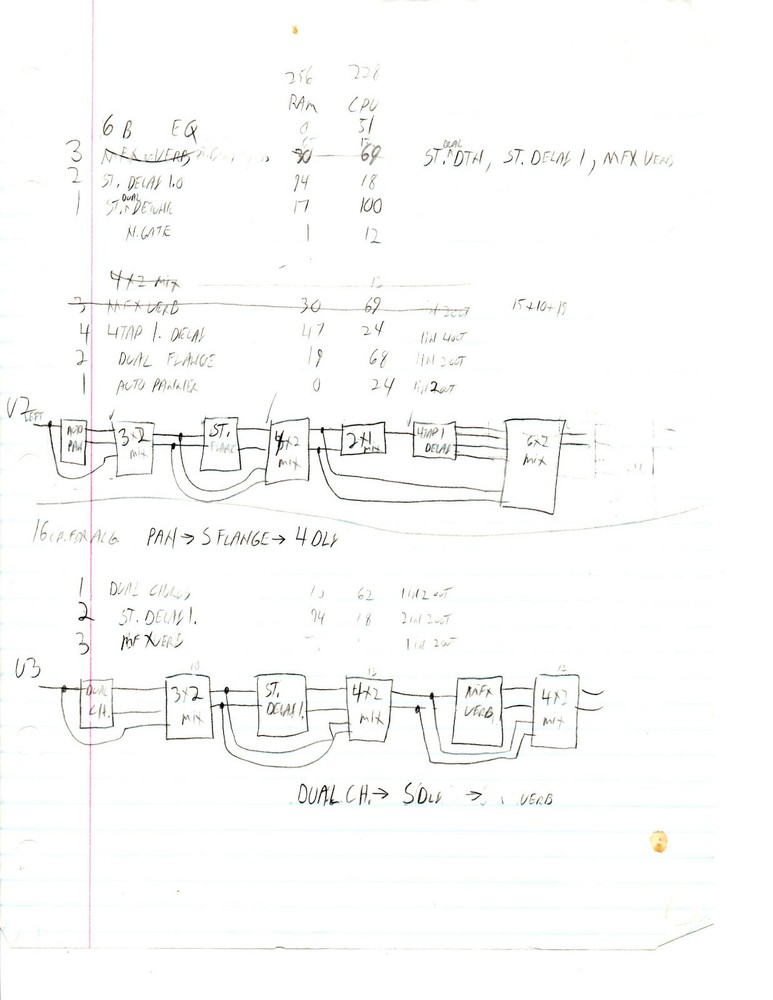 256 228
RAM CPU
6 B EQ 0 51
3 MFX VERB 30 69 ST. DUAL DTN, ST. DELAY 1, MFX VERB
2 ST. DELAY 1.0 94 18
1 ST. DUAL DETUNE 17 100
N.GATE 1 12
4X2 MIX 12
3 MFX VERB 30 69 1IN 2OUT 15+10+15
4 4TAP 1. DELAY 47 24 1IN 4OUT
2 DUAL FLANGE 19 68 1IN 2OUT
1 AUTO PANNER 0 24 1IN 2OUT
V2 LEFT
AUTO PAN 3X2 MIX ST. FLANG 4X2 MIX 2X1 MIX 4TAP 1 DELAY 6X2 MIX
PAN → S FLANGE → 4 DLY
1 DUAL CHORUS 62 1IN 2OUT
2 ST. DELAY 1. 94 18 2IN 2OUT
3 MFXVERB 1IN 2OUT
V3
10 12 12
DUAL CH. 3X2 MIX ST. DELAY 1. 4X2 MIX MFX VERB 4X2 MIX
DUAL.CH. → SDLY → VERB